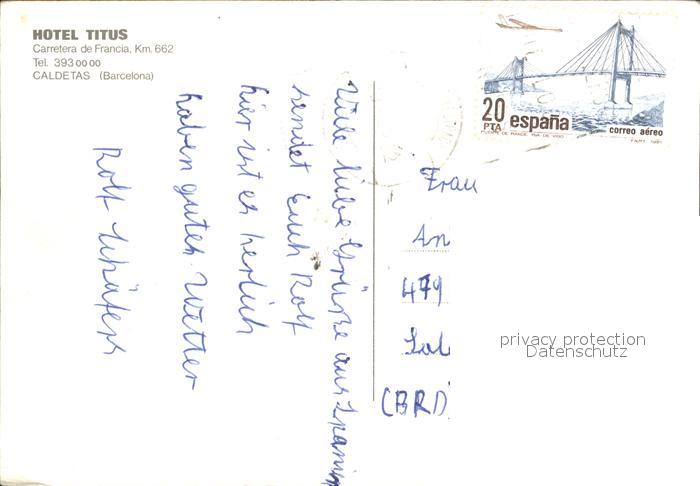 HOTEL TITUS
Carretera de Francia, Km. 662
Tel. 393 00 00
CALDETAS (Barcelona)
Viele liebe Grüße aus Spanien
sendet Euch Rolf
hier ist es herlich
haben gutes Wetter
Rolf
20 PTA españa correo aéreo
PUENTE DE RANDE, RIA DE VIGO F.N.M.T. 1981
Frau
An
479
(BRD
privacy protection
Datenschutz